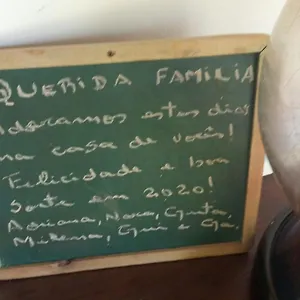 QUERIDA FAMILIA
Adoramos estes dias
na casa de vocês!
Felicidade e boa
sorte em 2020!
Adriana, Nara, Guta,
Milena, Gui e Ga.